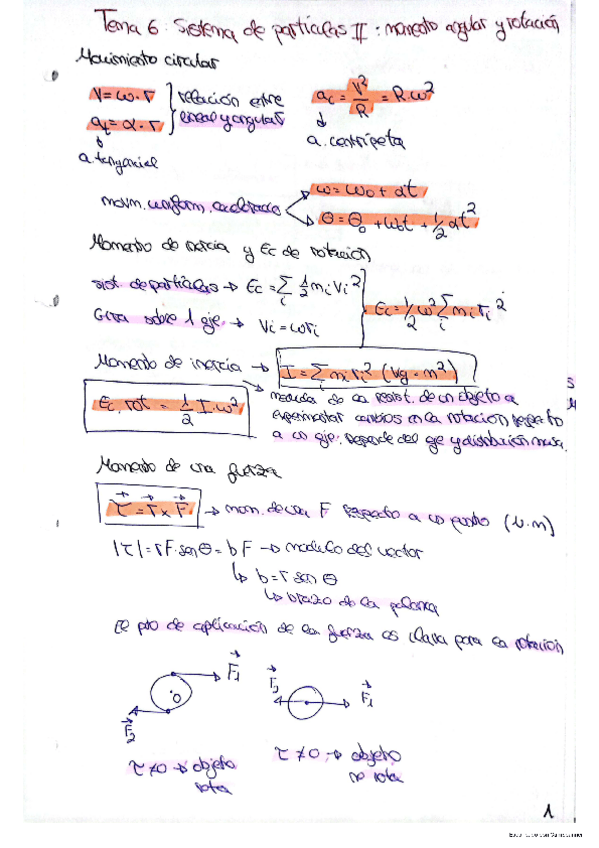 Tema 6: Sistema de partículas II: momento angular y rotación
Movimiento circular
V = ω · r
a_t = α · r
relación entre
lineal y angular
a_c = V²/R = R·ω²
a. centrípeta
a. tangencial
movm. uniform. acelerado
ω = ω₀ + αt
θ = θ₀ + ω₀t + 1/2 αt²
Momento de inercia y Ec de rotación
sist. de partículas → Ec = Σ_i 1/2 m_i v_i²
Gira sobre 1 eje → V_i = ωr_i
Ec = 1/2 ω² Σ_i m_i r_i²
Momento de inercia → I = Σ_i m_i r_i² (kg·m²)
Ec, rot = 1/2 I·ω²
medida de la resist. de un objeto a
experimentar cambios en la rotación respecto
a un eje. Depende del eje y distribución masa.
Momento de una fuerza
τ⃗ = r⃗ x F⃗ → mom. de una F respecto a un punto (N·m)
|τ| = rF·senθ = bF → módulo del vector
↳ b = r sen θ
↳ brazo de la palanca
El pto de aplicación de la fuerza es clave para la rotación
F⃗₁
O
F⃗₂
F⃗₂
F⃗₁
τ≠0 → objeto
rota
τ≠0 → objeto
no rota
1